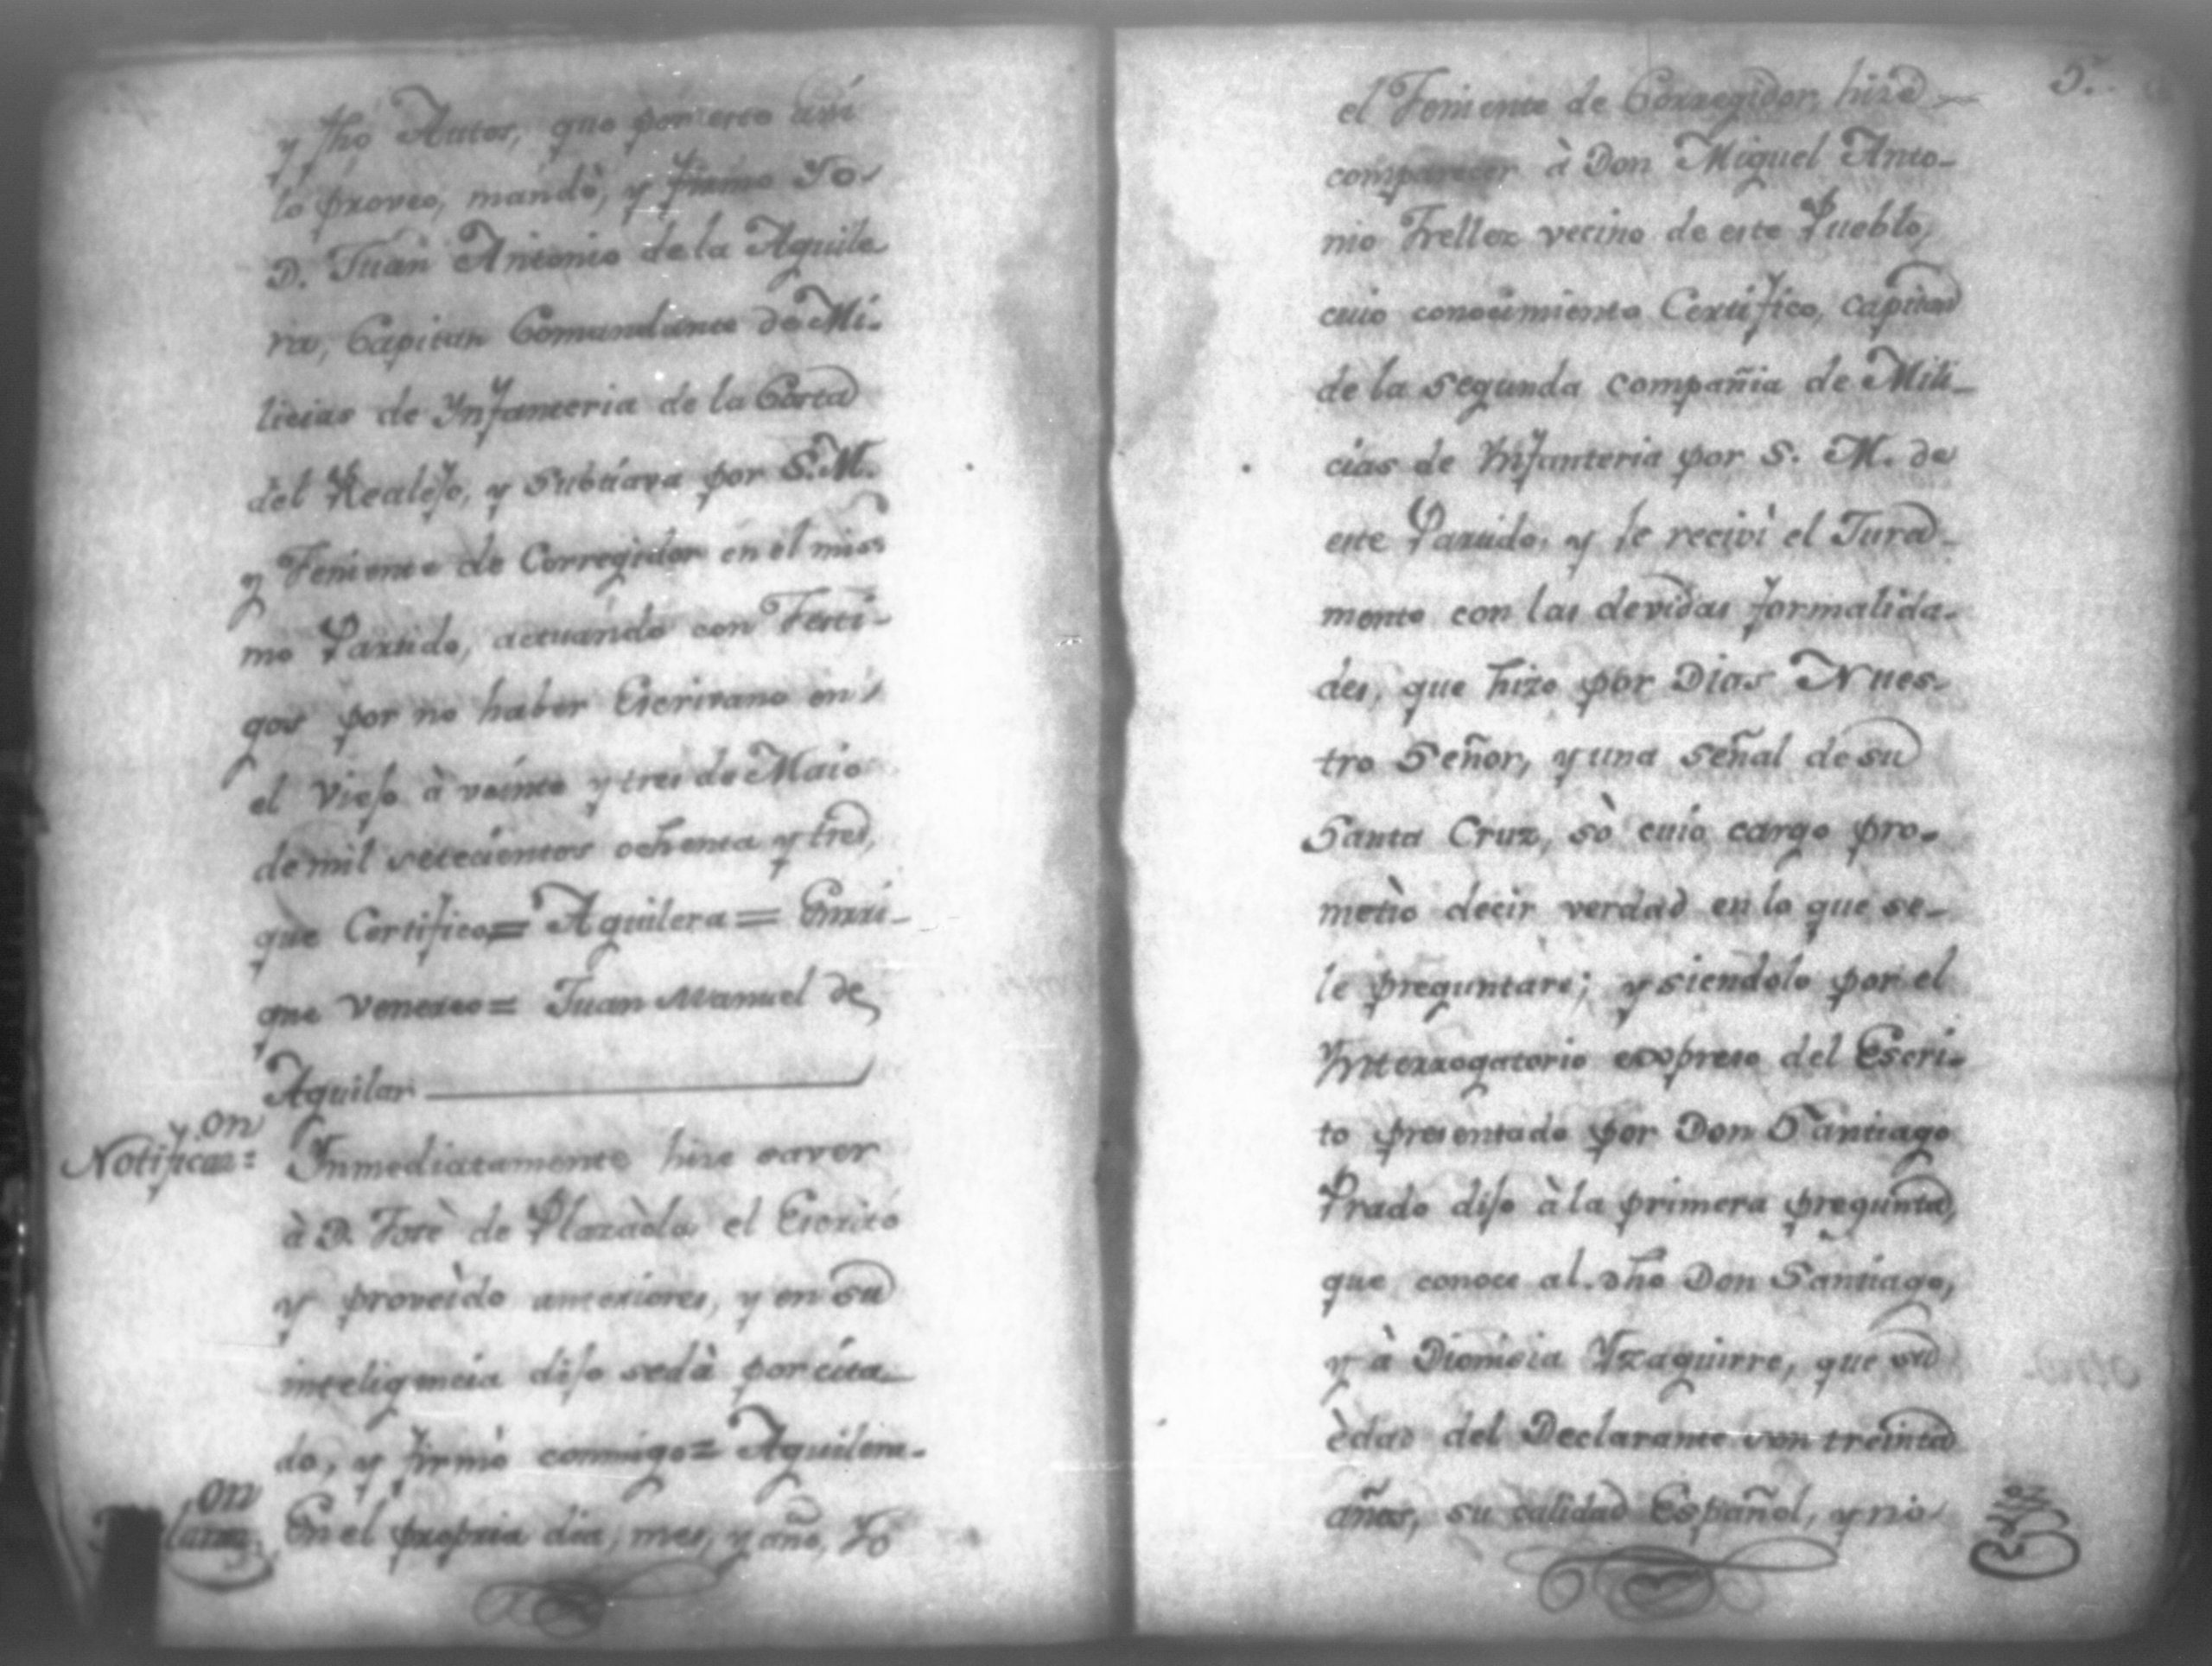 y fho Autos, que por este asi
lo proveo, mandò, y firmo Yo
D. Juan Antonio de la Aguile
ra, Capitan Comandante de Mi-
licias de Ynfanteria de la Costa
del Realejo, y Subtiava por S. M.
y Teniente de Corregidor en el mis
mo Partido, actuando con Testi-
gos por no haber Escrivano en
el Viejo à veinte y tres de Maio
de mil setecientos ochenta y tres,
que Certifico= Aguilera= Enrri-
que Venereo= Juan Manuel de
Aguilar
Notificaz.on
Ynmediatamente hize saver
à D. Josè de Plazàola el Escrito
y proveìdo anteriores, y en su
inteligencia dijo sedà por cita-
do, y firmò conmigo= Aguilera-
Declaraz.on
En el propria dia, mes, y año, Yo
5.
el Teniente de Corregidor, hize
comparecer à Don Miguel Anto-
nio Trellez vecino de este Pueblo,
cuio conocimiento Certifico, capitan
de la segunda compañia de Mili-
cias de Ynfanteria por S. M. de
este Partido, y le recivì el Jura-
mento con las devidas formalida-
des, que hizo por Dias Nues-
tro Señor, y una señal de su
Santa Cruz, sò cuio cargo pro-
metìo decir verdad en lo que se-
le preguntare; y siendolo por el
Ynterrogatorio expreso del Escri-
to presentado por Don Santiago
Prado dijo à la primera pregunta,
que conoce al dho Don Santiago,
y à Dionisia Yzaguirre, que su
èdad del Declarante son treinta
años, su calidad Español, y no